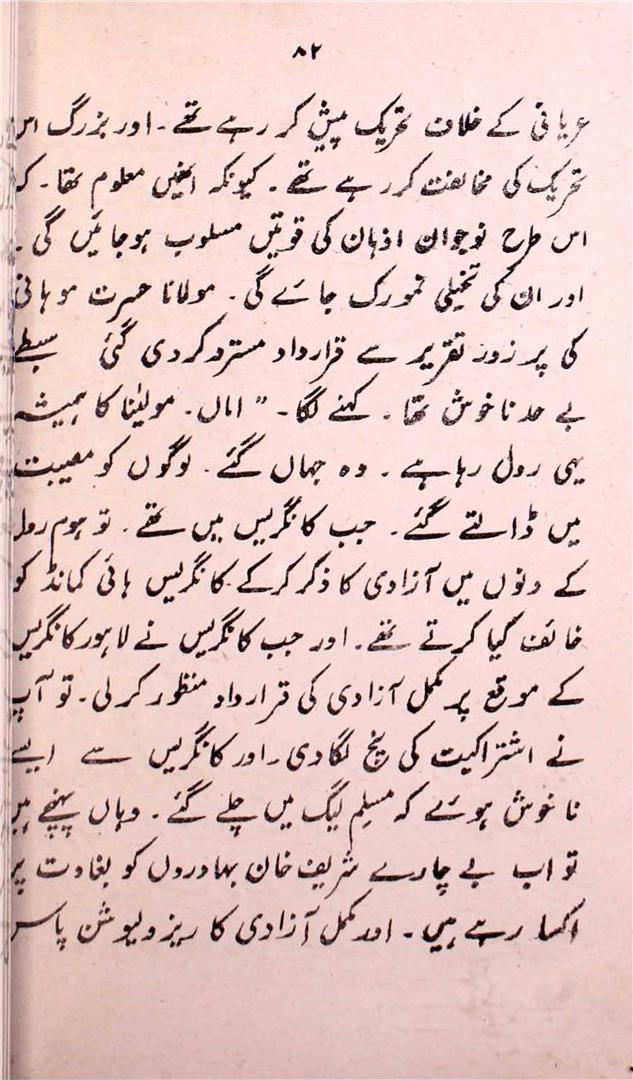 ۸۲
عریانی کے خلاف تحریک پیش کر رہے تھے ۔ اور بزرگ اس
تحریک کی مخالفت کر رہے تھے ۔ کیونکہ انھیں معلوم تھا ۔ کہ
اس طرح نوجوان اذہان کی قوتیں مسلوب ہو جائیں گی ۔
اور ان کی تخیلی نمو رک جائے گی ۔ مولانا حسرت موہانی
کی پر زور تقریر سے قرارداد مسترد کر دی گئی سبطے
بے حد ناخوش تھا ۔ کہنے لگا ۔ " اماں ۔ مولیٰنا کا ہمیشہ
یہی رول رہا ہے ۔ وہ جہاں گئے ۔ لوگوں کو مصیبت
میں ڈالتے گئے ۔ جب کانگریس میں تھے ۔ تو ہوم رول
کے دنوں میں آزادی کا ذکر کرکے کانگریس ہائی کمانڈ کو
خائف کیا کرتے تھے ۔ اور جب کانگریس نے لاہور کانگریس
کے موقع پر مکمل آزادی کی قرارداد منظور کر لی ۔ تو آپ
نے اشتراکیت کی پخ لگا دی ۔ اور کانگریس سے ایسے
ناخوش ہوئے کہ مسلم لیگ میں چلے گئے ۔ وہاں پہنچے ہیں
تو اب بے چارے شریف خان بہادروں کو بغاوت پر
اکسا رہے ہیں ۔ اور مکمل آزادی کا ریزولیوشن پاس